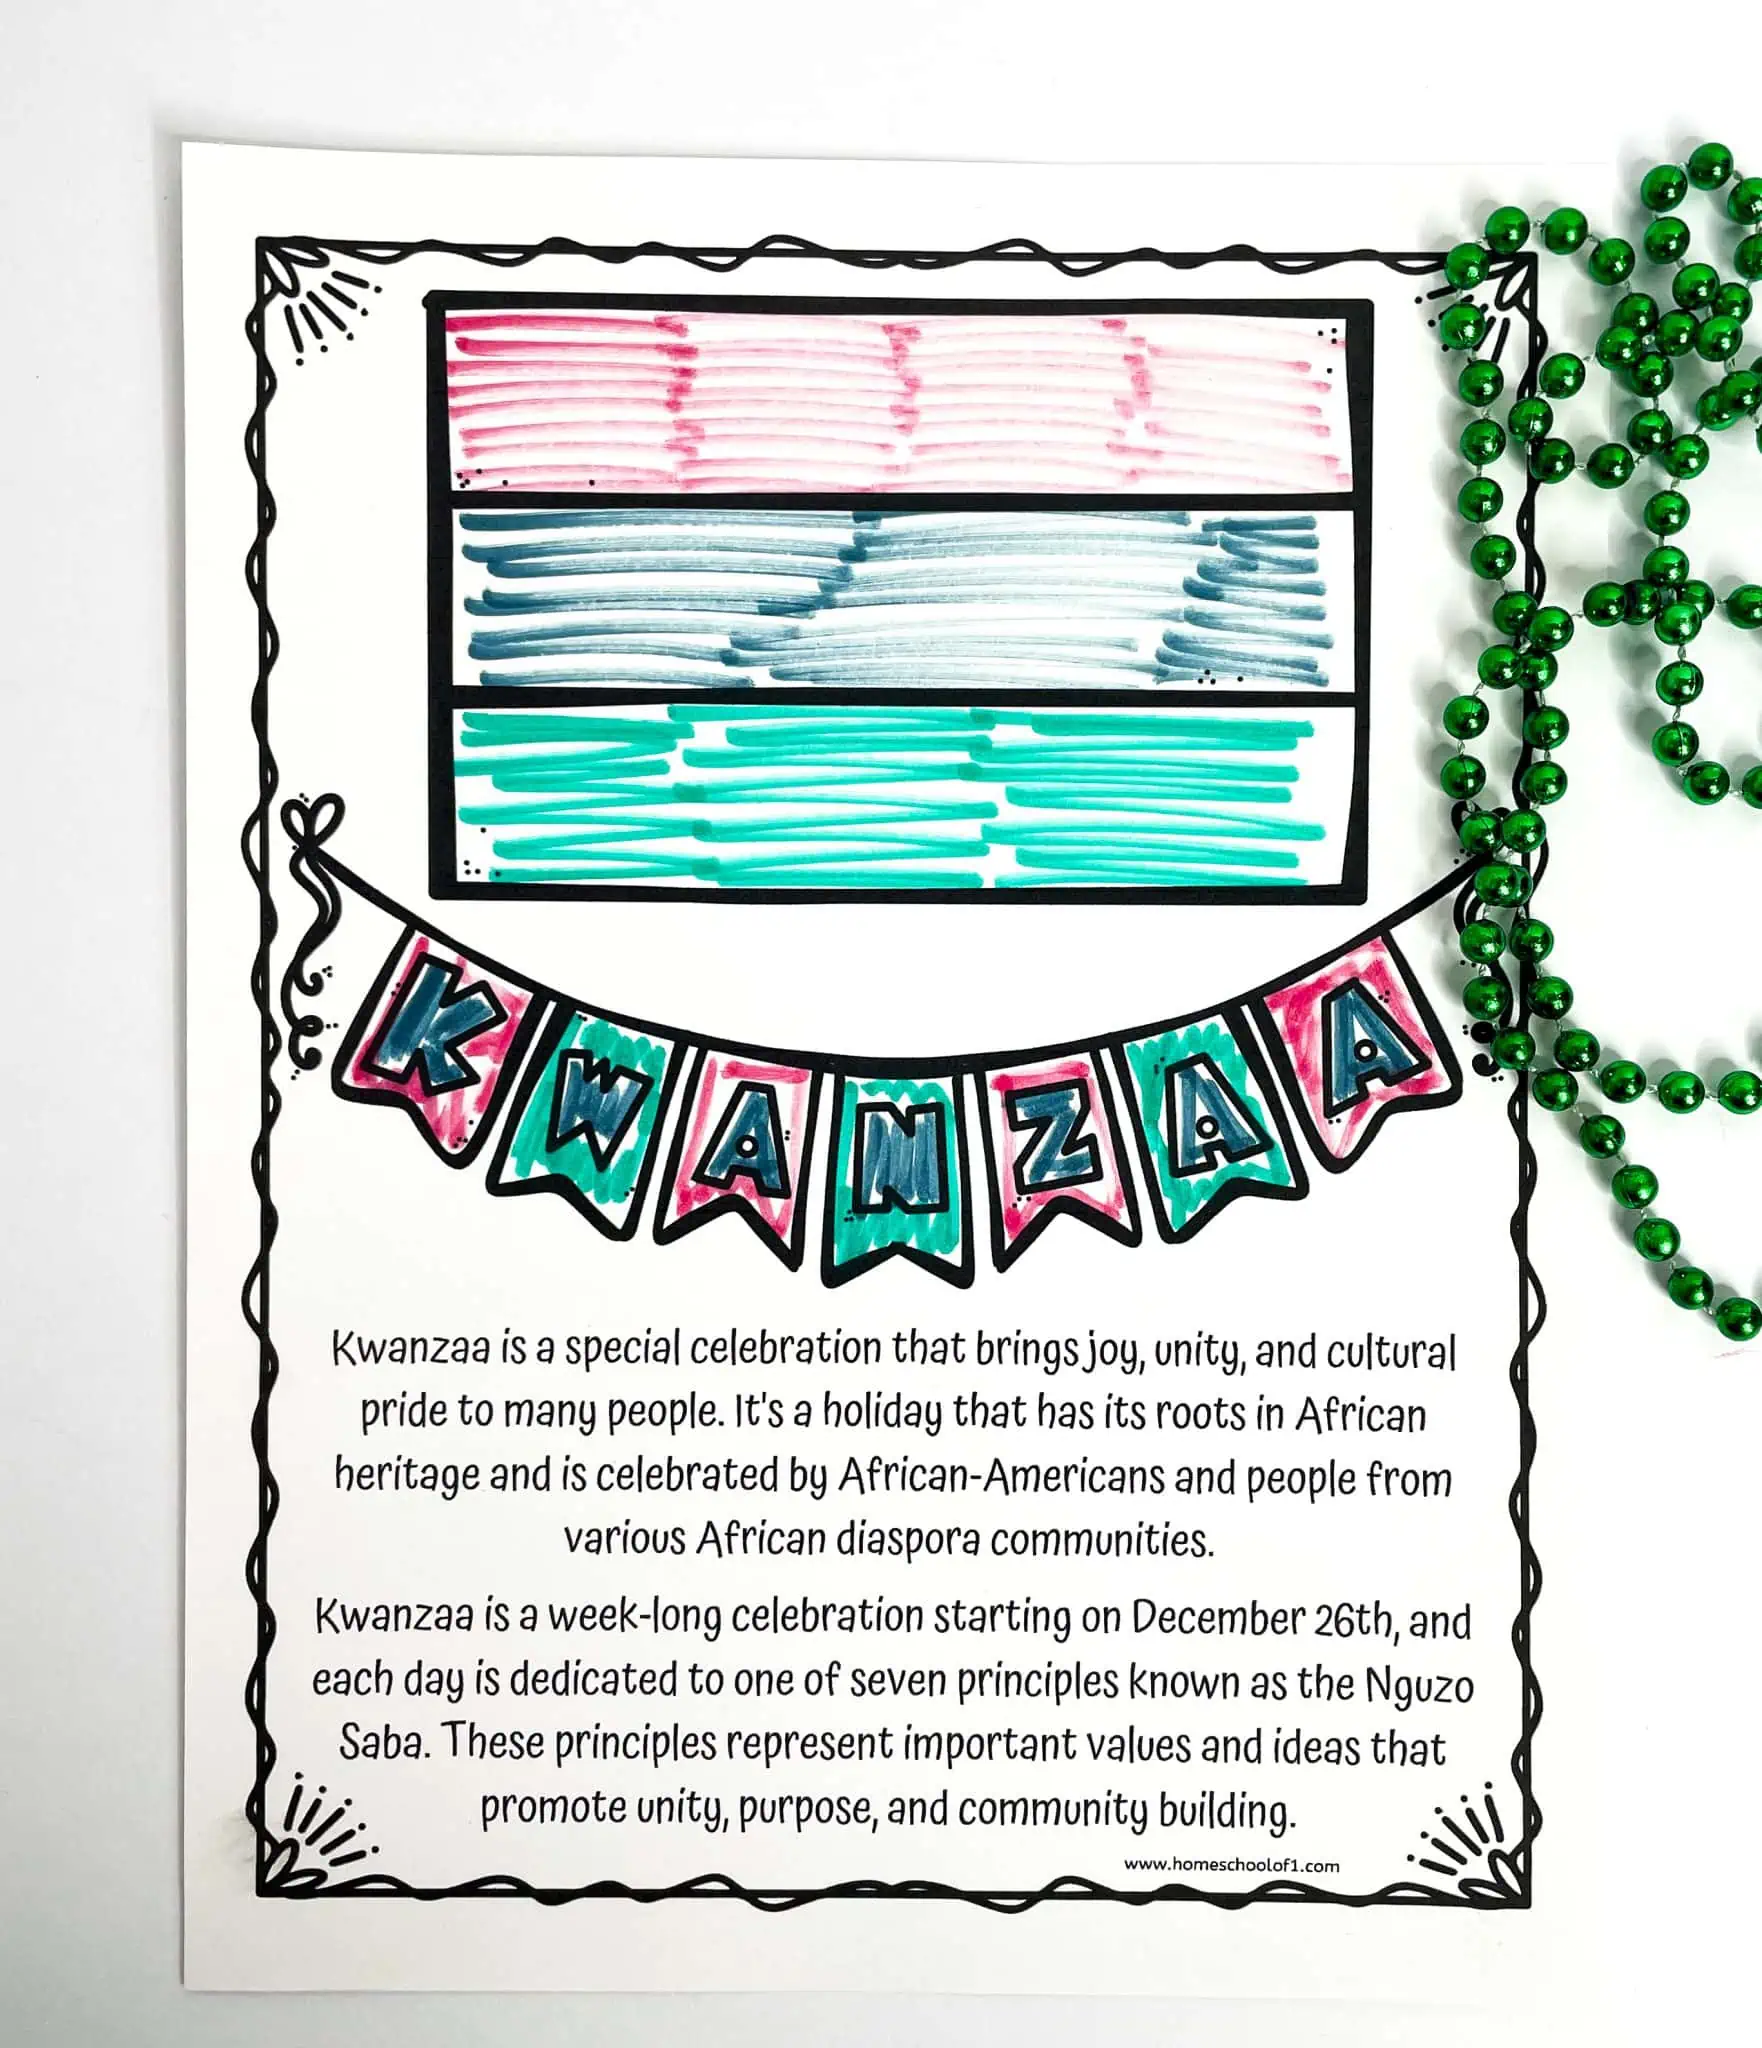 KWANZAA
Kwanzaa is a special celebration that brings joy, unity, and cultural
pride to many people. It's a holiday that has its roots in African
heritage and is celebrated by African-Americans and people from
various African diaspora communities.
Kwanzaa is a week-long celebration starting on December 26th, and
each day is dedicated to one of seven principles known as the Nguzo
Saba. These principles represent important values and ideas that
promote unity, purpose, and community building.
www.homeschoolof1.com